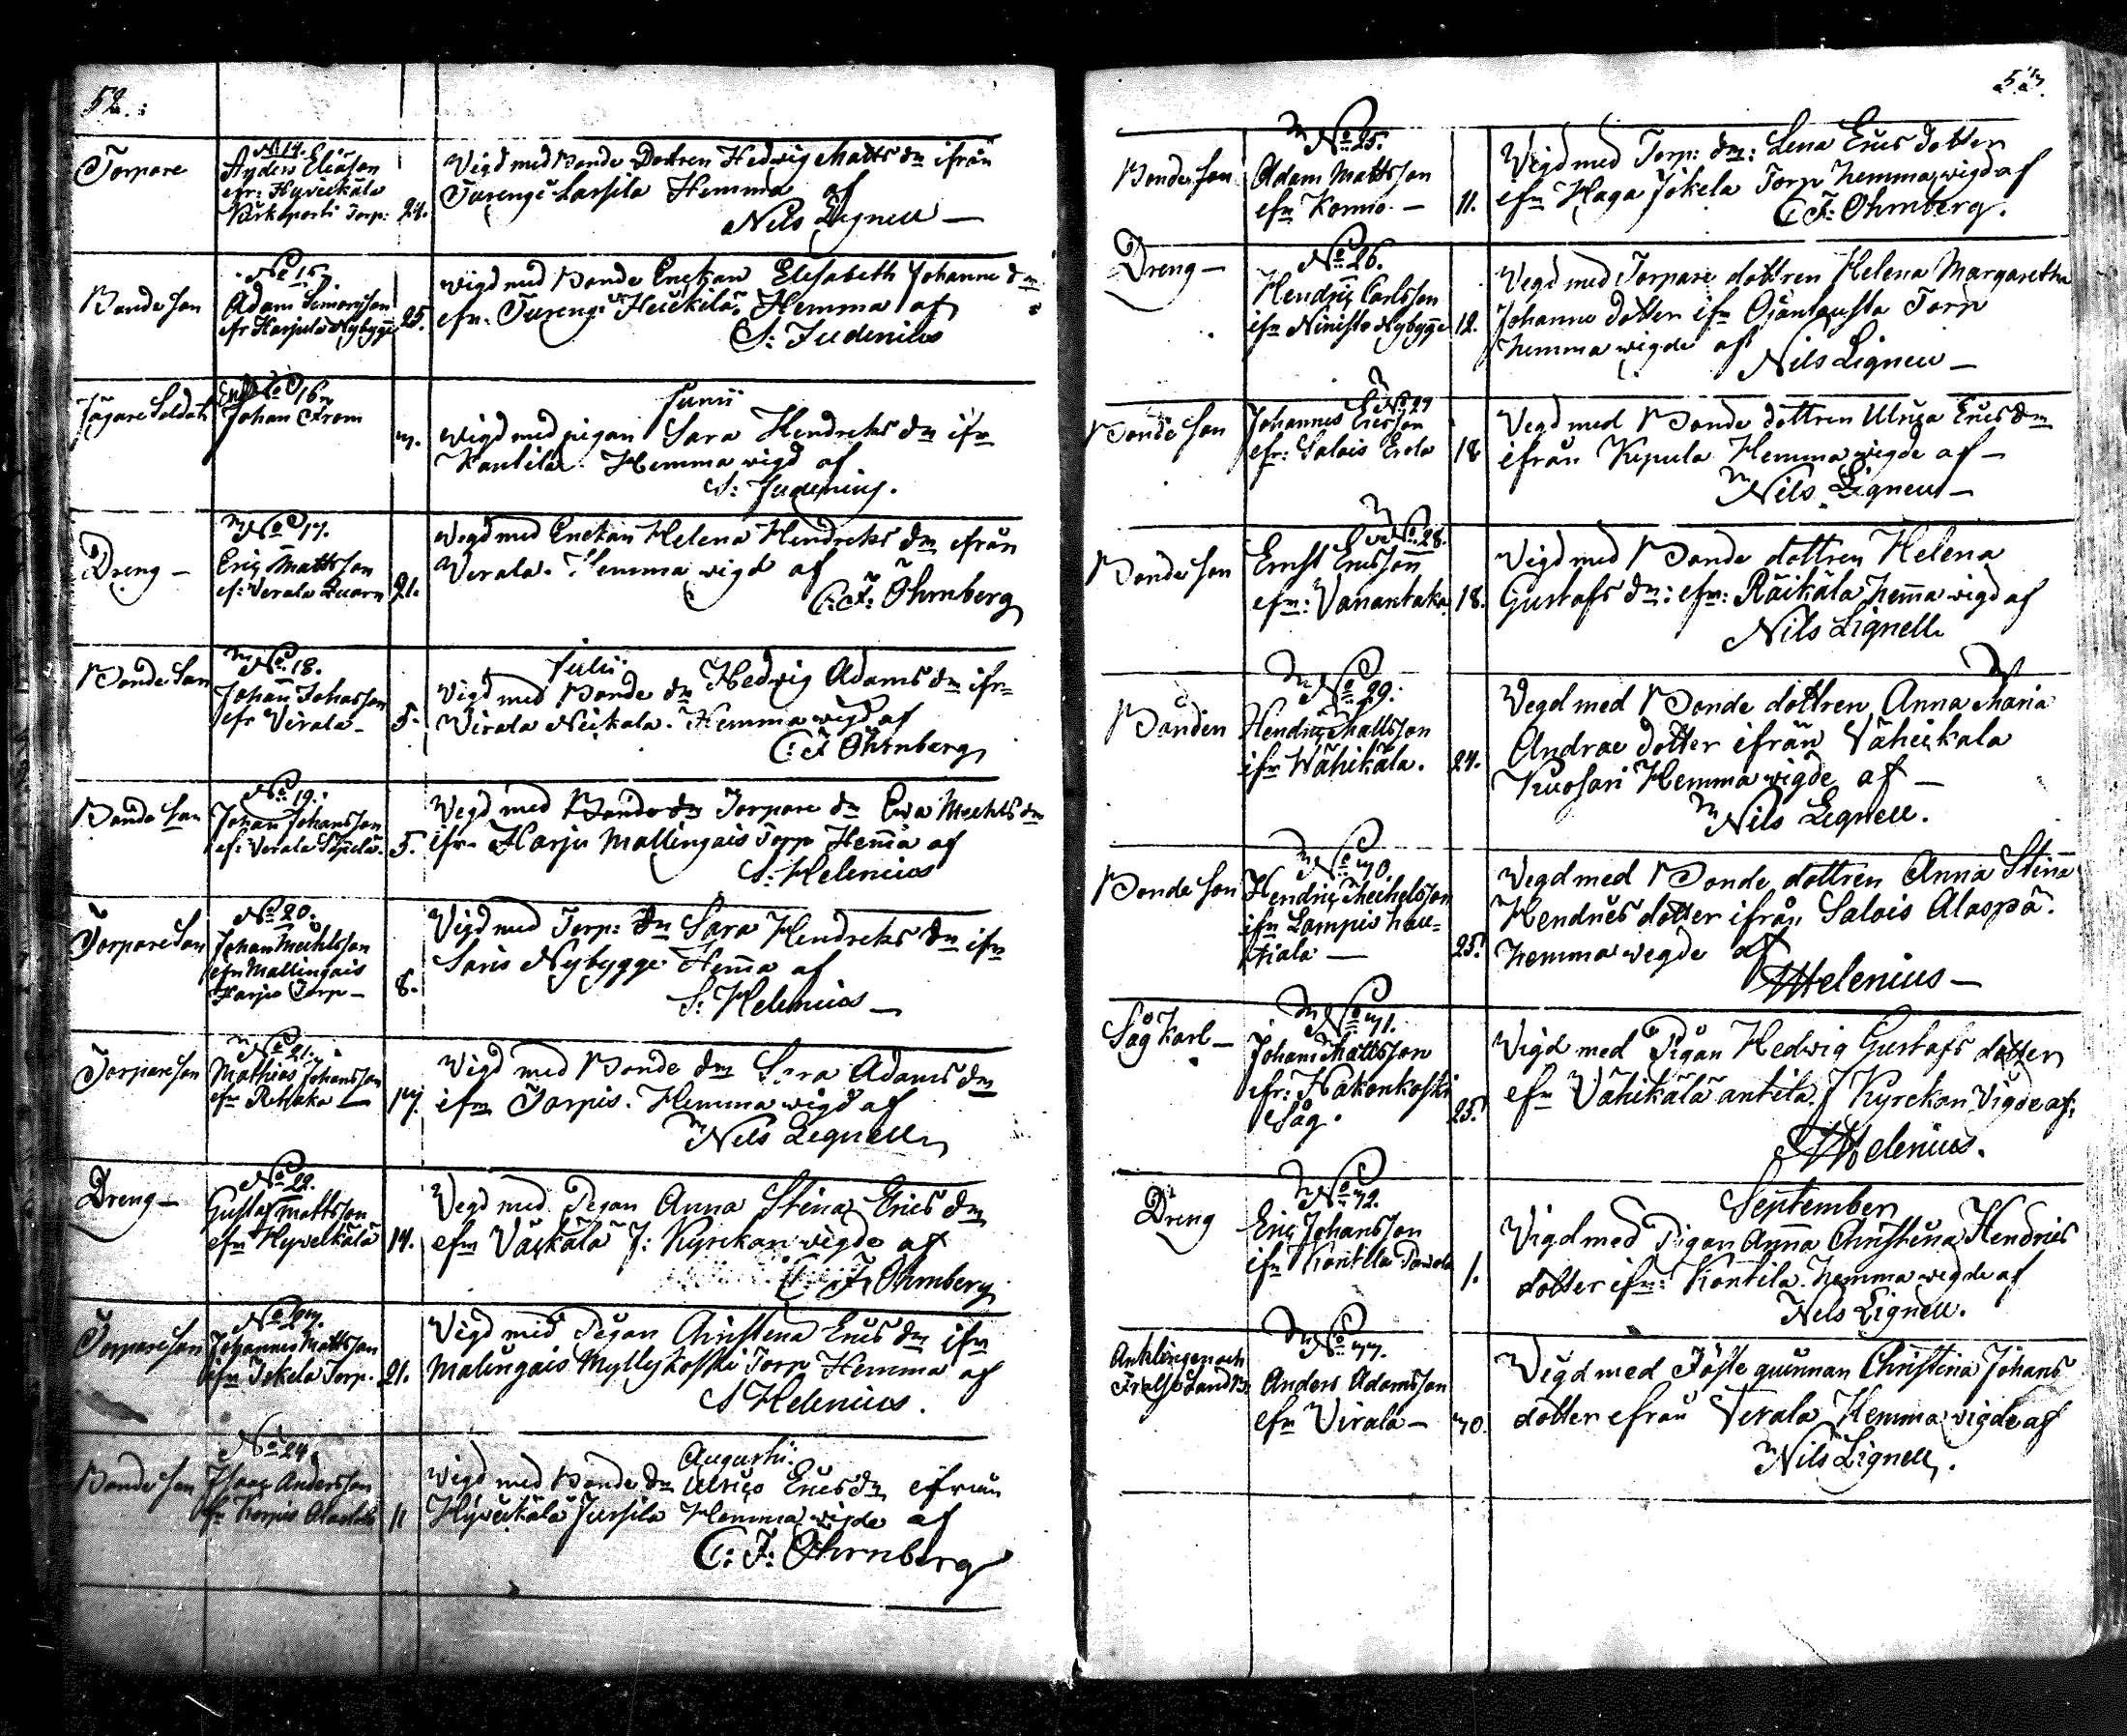 52.:
Torpare
No 14.
Anders Eliæson
efr: Hyvickälä
Kirkoporti Torp: 24.
Vigd med Bonde Dottren Hedvig Matts dr ifrån
Turengi Lassila Hemma af
Nils Lignell —
Bonde son
No 15
Adam Simonsson
efr Harjula Nybygge 25.
wigd med Bonde Enckan Elisabeth Johans dr
efr. Turengi Heickilä, Hemma af
S: Judenius
Jägare Soldat
No 16
Johan From
3.
Junii
wigd med pigan Sara Hendricks dr ifr
Kantila. Hemma wigd af
S: Judenius.
Dreng —
No 17.
Eric Mattsson
ef: Verala Quarn 21.
Wigd med Enckan Helena Hendricks dr ifrån
Verala. Hemma wigd af
C: F: Öhrnberg
Bonde son
No 18.
Johan Johansson
efr Virala — 5.
Julii
Vigd med Bonde dr Hedvig Adams dr ifr
Virala Neickala. Hemma wigd af
C: F Öhrnberg
Bonde son
No 19.
Johan Johansson
ef: Verala 5.
Vigd med Torpare dr Ewa Mechls dr
ifr Harju Mallingais Torp Hem̄a af
S: Helenius
Torpare son
No 20.
Johan Mechlsson
efr Mallingais
Harju Torp — 8.
Vigd med Torp: dr Sara Hendricks dr ifr
Saris Nybygge Hem̄a af
S: Helenius —
Torpare son
No 21.
Mathias Johansson
efr Rehaka — 13.
Vigd med Bonde dr Sara Adams dr
ifr Torpis. Hemma wigd af
Nils Lignell
Dreng —
No 22.
Gustaf Mattsson
efr Hyvelkälä 14.
Vigd med Pigan Anna Stina Erics dr
efr Väskälä J: Kyrckan wigde af
C: F: Öhrnberg
Torpare son
No 23.
Johannes Mattsson
ifr Jokela Torp. 21.
Vigd med Pigan Christina Erics dr ifr
Malingais Myllykoski Torp Hemma af
S Helenius.
Bonde son
No 24.
Isaac Andersson
ifr Korpis 11
Augusti:
Vigd med Bonde dr Ulrica Erics dr ifrån
Hyvickälä Jussila Hemma wigde af
C: F: Öhrnberg
53.
Bonde son
No 25.
Adam Mattsson
efr Komio. — 11.
Vigd med Torp: dr: Lena Erics dotter
efr Haga Jokela Torp hemma wigd af
C F: Öhrnberg.
Dreng —
No 26.
Hendric Carlsson
ifr Ninisto Nybygge 12.
Vigd med Torpare dottren Helena Margaretha
Johans dotter ifr Ojantausta Torp
hemma wigde af
Nils Lignell —
Bonde son
No 27
Johannes Ericsson
efr: Salois Erola 18
Vigd med Bonde dottren Ulrica Erics dr
ifrån Kepula Hemma wigde af —
Nils Lignell —
Bonde son
No 28.
Ernst Ericsson
efr: Vanantaka 18.
Vigd med Bonde dottren Helena
Gustafs dr: efr: Räikälä hem̄a wigd af
Nils Lignell
Bonden
No 29.
Hendric Mattsson
ifr Wähikälä. 24.
Vigd med Bonde dottren Anna Maria
Andrae dotter ifrån Vähickala
Kuosari Hemma wigde af —
Nils Lignell.
Bonde son
No 30.
Hendric Mechelsson
ifr Lampis hau=
tiala — 25.
Vigd med Bonde dottren Anna Stina
Hendrics dotter ifrån Salois Alaspä.
hemma wegde af
Helenius —
Såg Karl —
No 31.
Johan Mattsson
efr: Hakonkoski
Såg. 25.
Vigd med Pigan Hedvig Gustafs dotter
efr Vähikälä antila. J Kyrckan Vigde af
Helenius.
Dreng
No 32.
Eric Johansson
ifr Kontila 1.
September
Vigd med Pigan Anna Christina Hendrics
dotter ifr: Kontila. hemma wigde af
Nils Lignell.
Anklingen och
No 33.
Anders Adamsson
efr Virala — 30.
Vigd med Fäste quinnan Christina Johans
dotter efrån Verala Hemma wigde af
Nils Lignell.